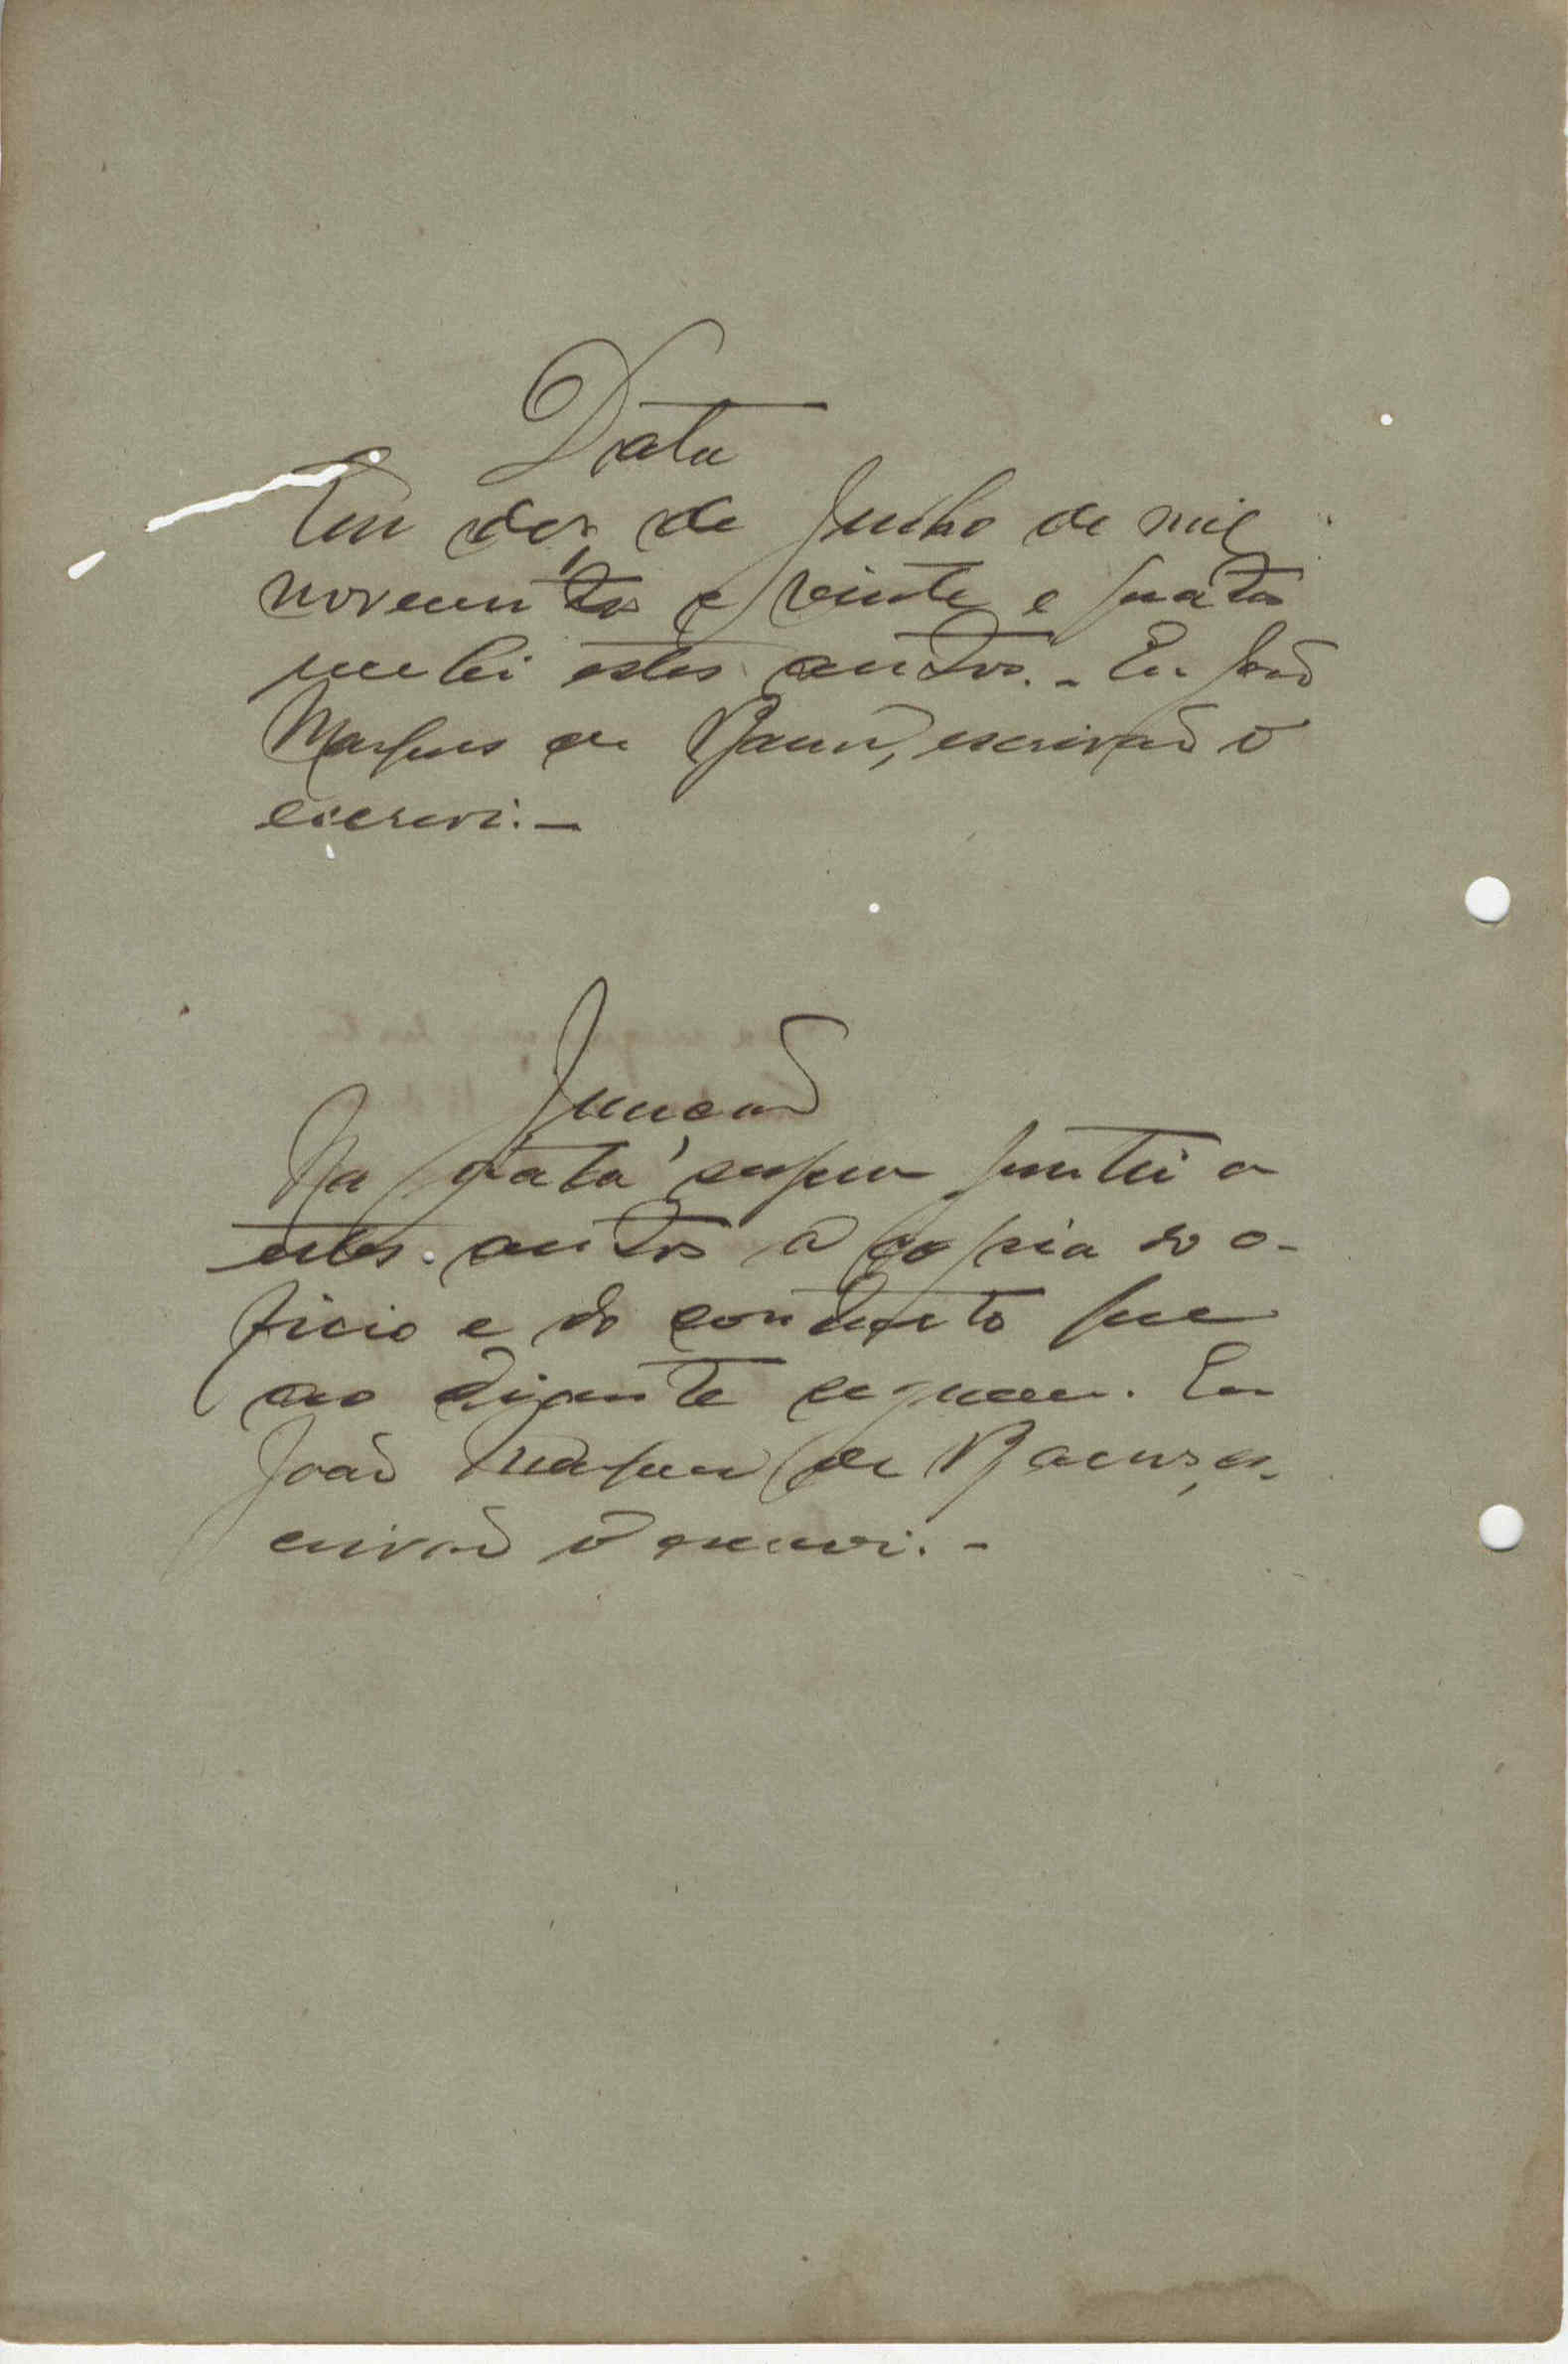 Data
Em dez de Junho de mil
novecentos e vinte e quatro
recebi estes autos. - Eu João
Marques de escrivão o
escrevi. -
Juncção
Na data supra juntei a
estes autos a copia do o-
ficio e do contracto que
ao diante seguem. Eu
João Marques de es-
crivão o escrevi. -